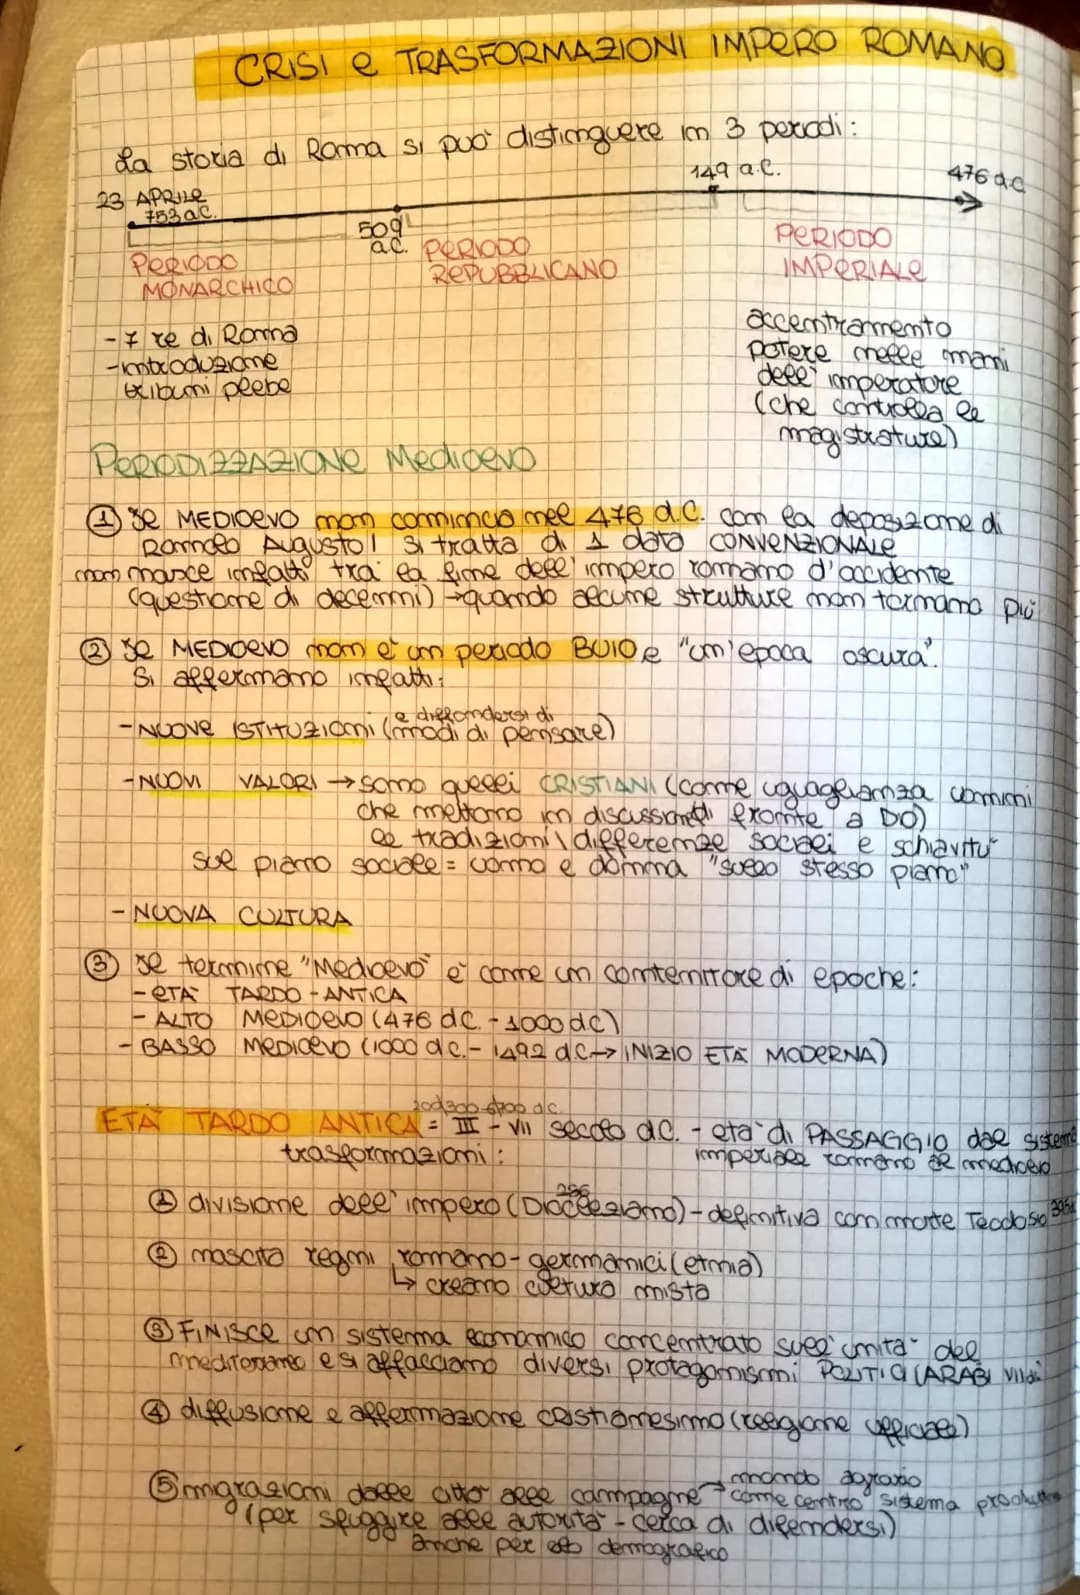 CRISI e TRASFORMAZIONI IMPERO ROMANO
La storia di Roma si può distinguere in 3 periodi:
23 APRILE 753 a.C.
509 a.C.
149 a.C.
476 d.C
PERIODO MONARCHICO
PERIODO REPUBBLICANO
PERIODO IMPERIALE
- 7 re di Roma
- introduzione
tribuni plebe
accentramento
potere nelle mani
dell'imperatore
(che controlla le
magistrature)
PERIODIZZAZIONE MEDIOEVO
① Il MEDIOEVO non comincia nel 476 d.C. con la deposizione di
Romolo Augusto! Si tratta di 1 data CONVENZIONALE
non nasce infatti tra la fine dell'impero romano d'occidente
(questione di decenni) → quando alcune strutture non tornano più
② Il MEDIOEVO non è un periodo BUIO e "un'epoca oscura".
Si affermano infatti:
- NUOVE ISTITUZIONI (e diffondersi di modi di pensare)
- NUOVI VALORI → sono quelli CRISTIANI (come uguaglianza uomini
che mettono in discussione di fronte a DIO)
le tradizioni \ differenze sociali e schiavitù
sul piano sociale = uomo e donna "sullo stesso piano"
- NUOVA CULTURA
③ Il termine "Medioevo" è come un contenitore di epoche:
- ETÀ TARDO-ANTICA
- ALTO MEDIOEVO (476 d.C. - 1000 d.C)
- BASSO MEDIOEVO (1000 d.C. - 1492 d.C → INIZIO ETÀ MODERNA)
ETÀ TARDO ANTICA = III - VII secolo d.C. - età di PASSAGGIO dal sistema
trasformazioni: imperiale romano al medioevo
① divisione dell'impero (Diocleziano) - definitiva con morte Teodosio
② nascita regni romano-germanici (etnia)
↳ creano cultura mista
③ FINISCE un sistema economico concentrato sull'unità del
mediterraneo e si affacciano diversi protagonismi POLITICI (ARABI
④ diffusione e affermazione cristianesimo (religione ufficiale)
⑤ migrazioni dalle città alle campagne → mondo agrario
come centro sistema
(per sfuggire alle autorità - cerca di difendersi)
anche per demografico